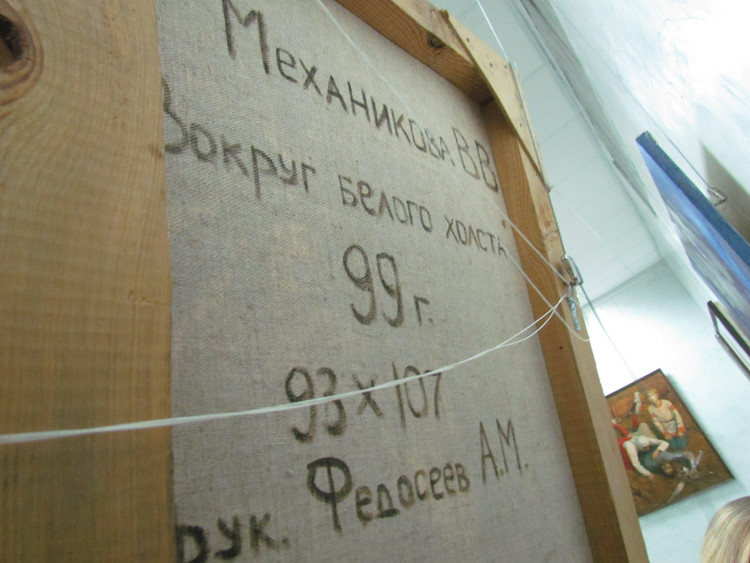 Механикова В В
Вокруг белого холста
99 г.
93 х 107
рук. Федосеев А.М.